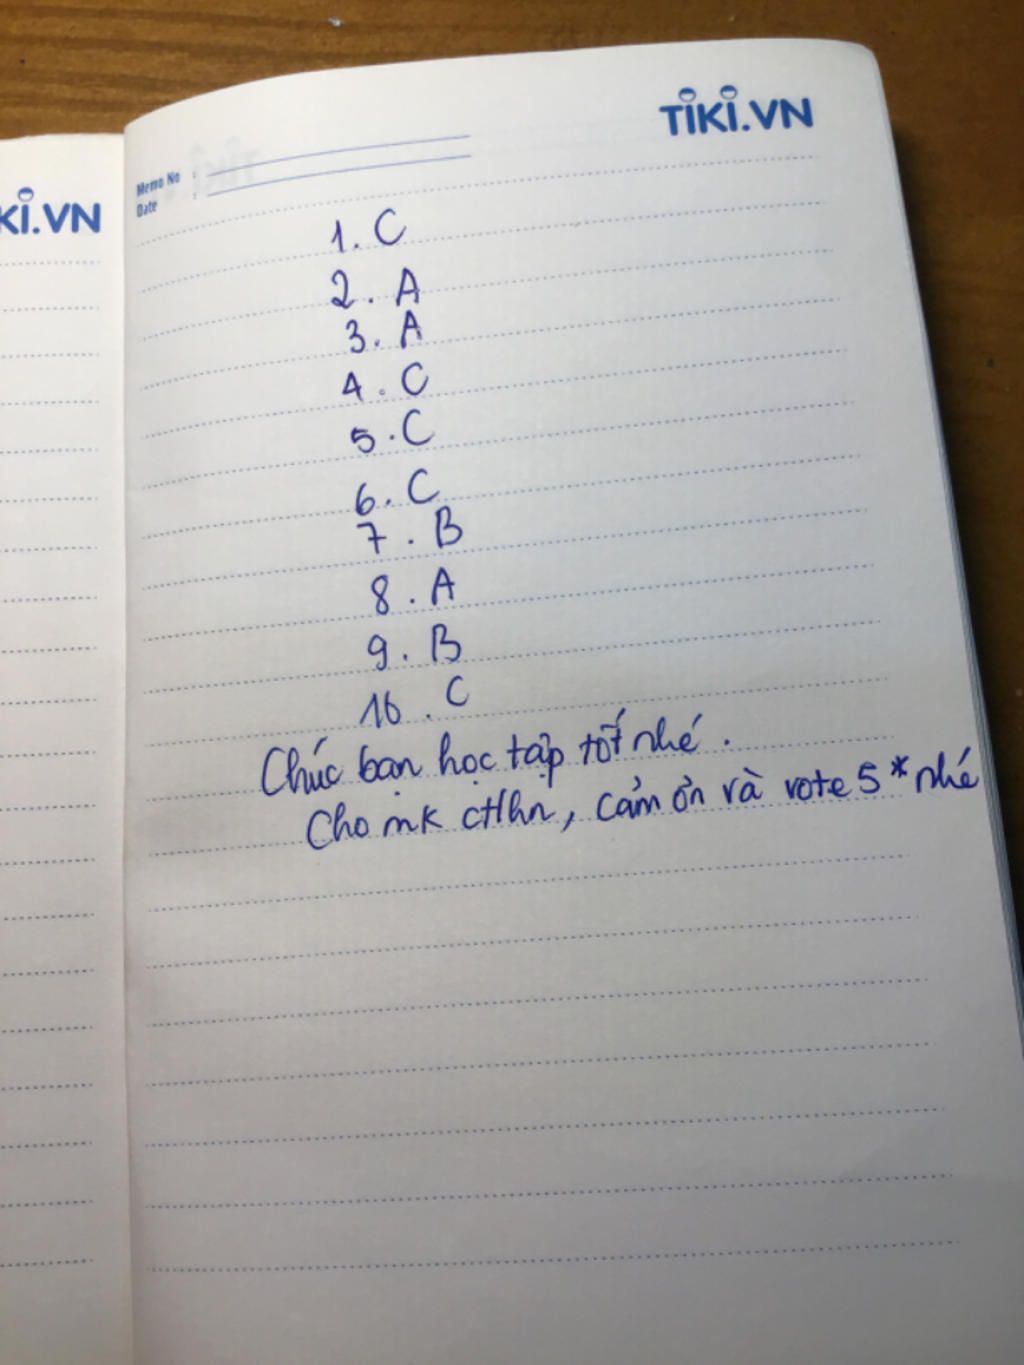 TIKI.VN
KI.VN
Memo No :
Date :
1. C
2. A
3. A
4. C
5. C
6. C
7. B
8. A
9. B
10. C
Chúc bạn học tập tốt nhé.
Cho mk ctlhn, cảm ơn và vote 5* nhé